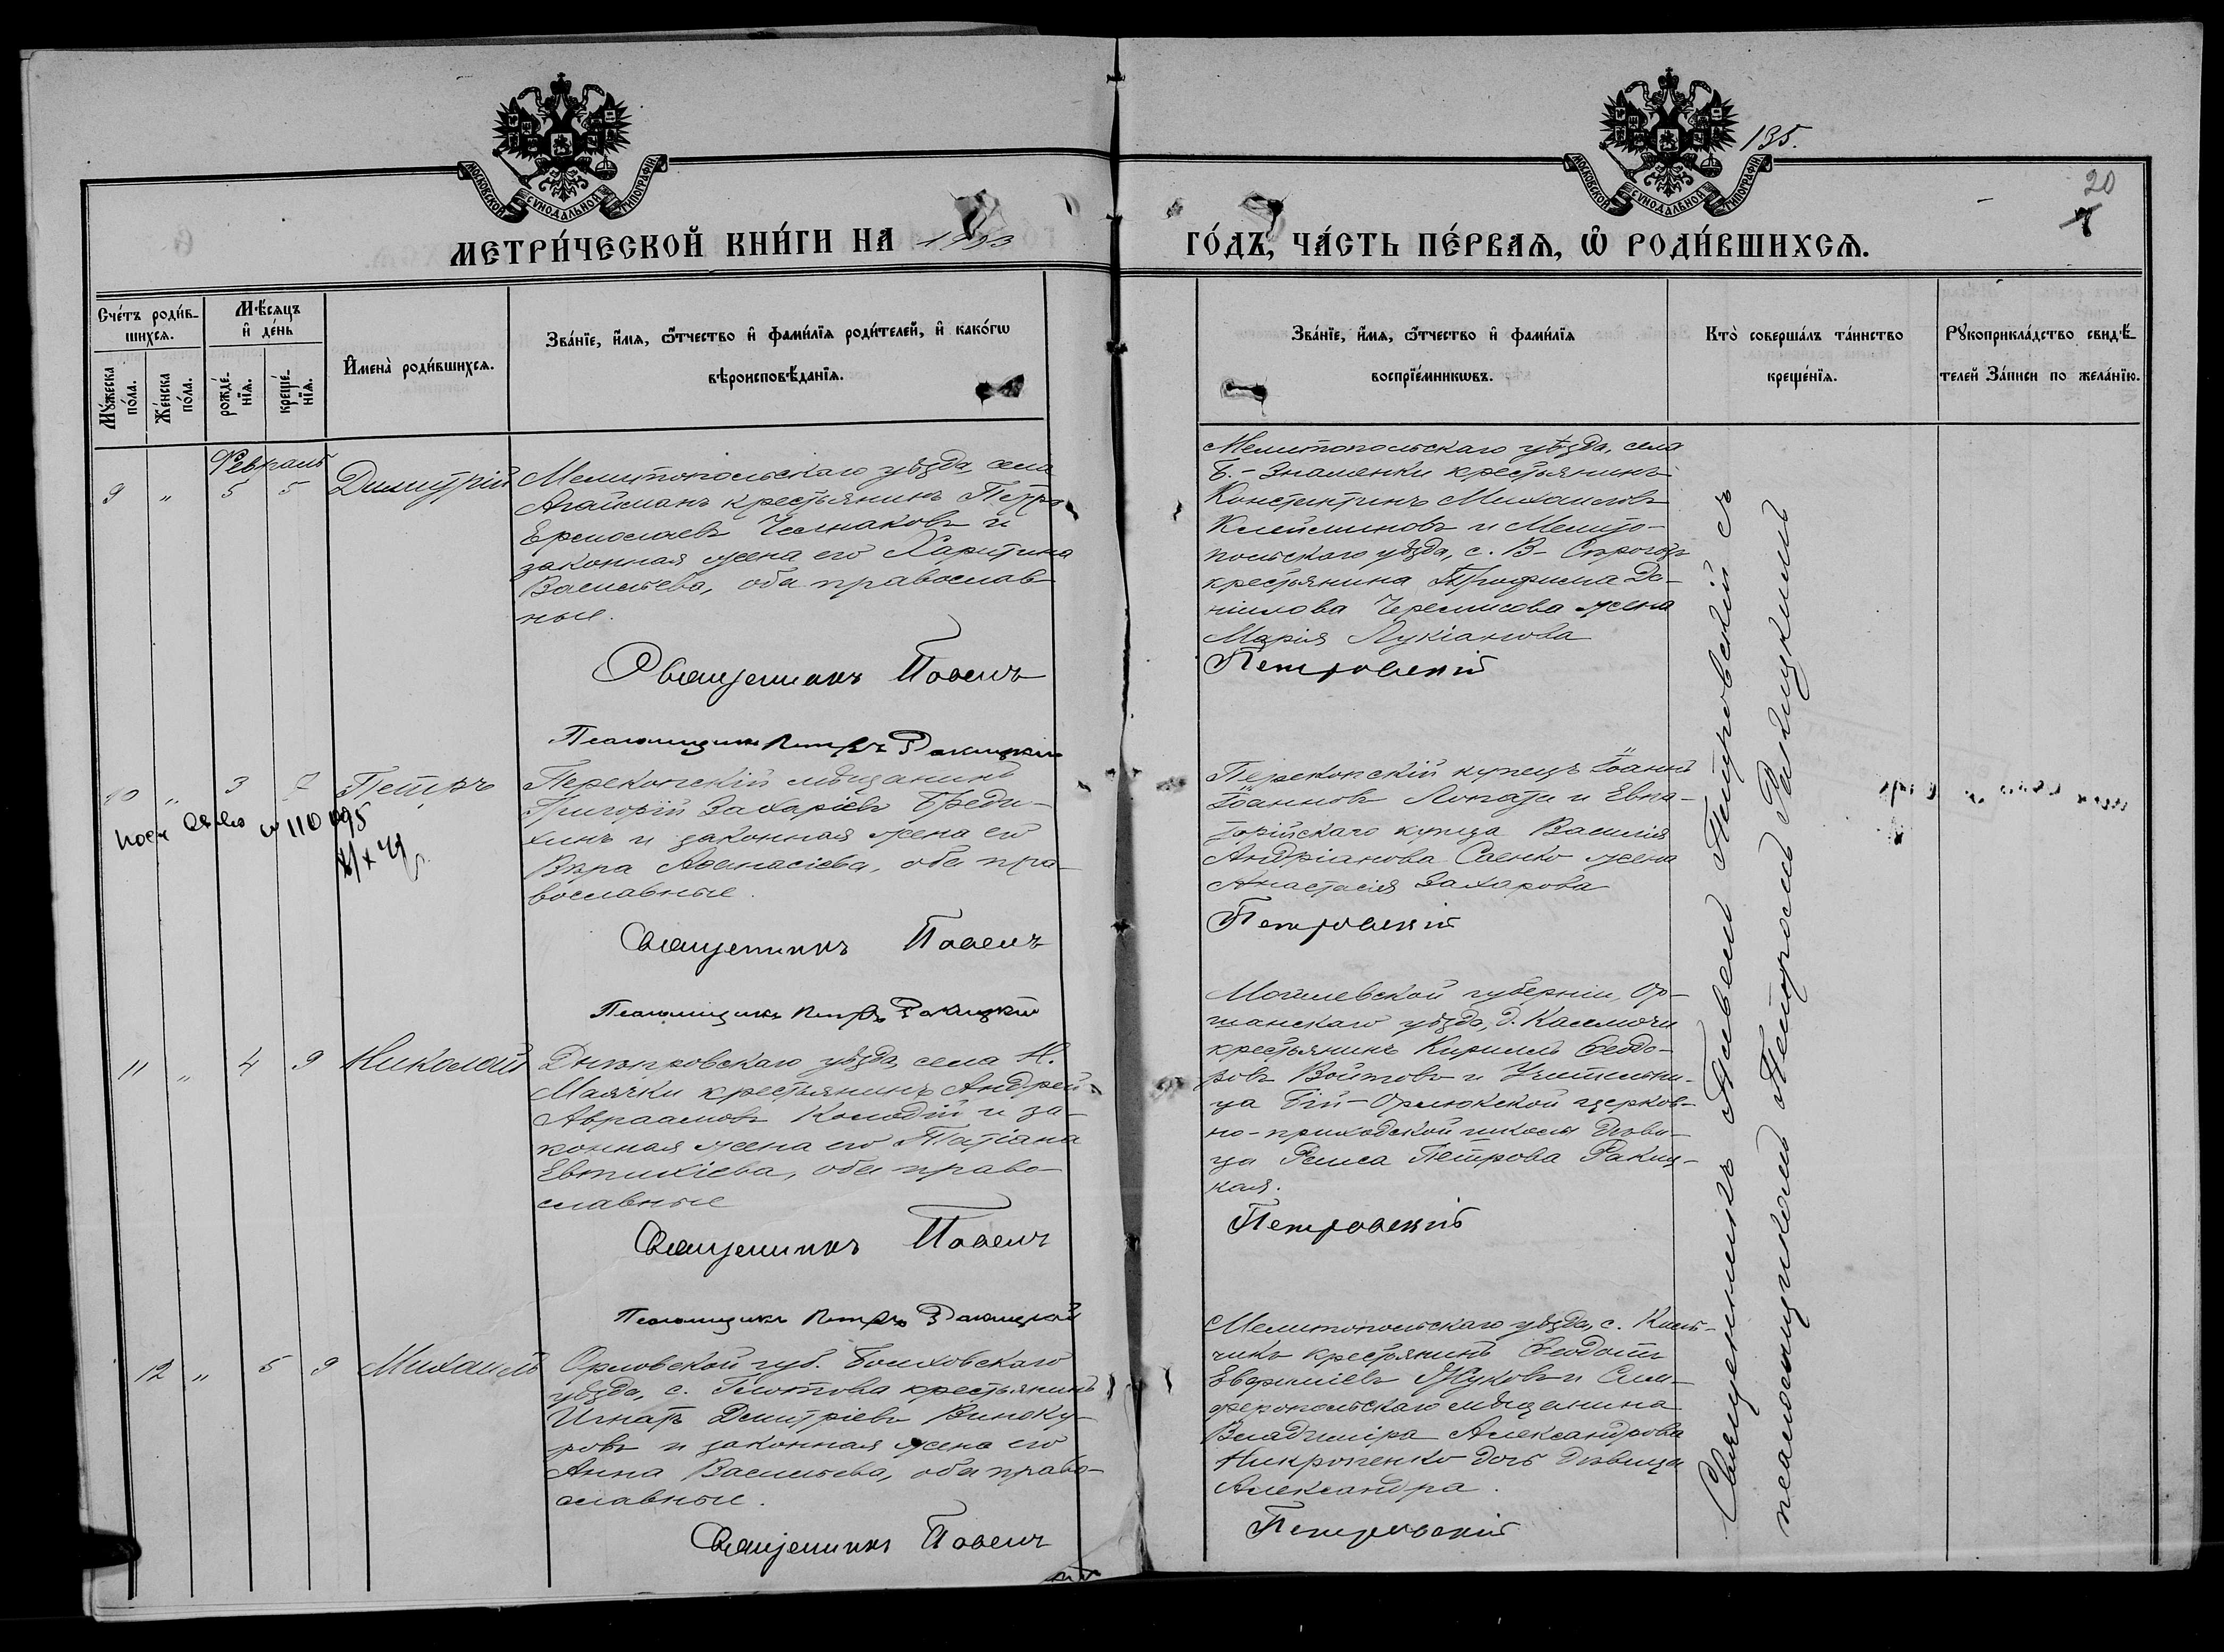 135.
20
7
МОСКОВСКОЙ СѴНОДАЛЬНОЙ ТИПОГРАФІИ
МОСКОВСКОЙ СѴНОДАЛЬНОЙ ТИПОГРАФІИ
МЕТРИ́ЧЕСКОЙ КНИ́ГИ НА
ГО́ДЪ, ЧА́СТЬ ПЕ́РВАѦ, Ѡ҆ РОДИ́ВШИХСѦ.
Сче́тъ роди́в-
шихсѧ.
Мѣ́сѧцъ
и҆ де́нь
Мꙋ́жеска
по́ла.
Же́нска
по́ла.
рожде́-
нїѧ.
креще́-
нїѧ.
И҆мена̀ роди́вшихсѧ.
Зва́нїе, и҆́мѧ, ѻ҆́тчество и҆ фами́лїѧ роди́телей, и҆ како́гѡ
вѣроисповѣ́данїѧ.
Зва́нїе, и҆́мѧ, ѻ҆́тчество и҆ фами́лїѧ
воспрїе́мникѡвъ.
Кто̀ соверша́лъ та́инство
креще́нїѧ.
Рꙋкоприкла́дство свидѣ́-
телей За́писи по жела́нїю.
Февраль
9 " 5 5 Димитрій
Мелитопольскаго уѣзда села
Агайманъ крестьянинъ Петръ
Ермолаевъ Челнаковъ и
законная жена его Харитина
Васильева, оба православ-
ные.
Священникъ Павелъ
Псаломщикъ Петръ Ракицкій
Мелитопольскаго уѣзда, села
Б.-Знаменки крестьянинъ
Константинъ Михаиловъ
Клейминовъ и Мелито-
польскаго уѣзда, с. В-Сѣрогозъ
крестьянина Трофима Да-
ніилова Черемисова жена
Марія Лукіанова
Петровскій
10 " 3 7 Петръ
110095
Перекопскій мѣщанинъ
Григорій Захаріевъ Бреди-
хинъ и законная жена его
Вѣра Аѳанасіева, оба пра-
вославные.
Священникъ Павелъ
Псаломщикъ Петръ Ракицкій
Перекопскій купецъ Іоаннъ
Іоанновъ Лопата и Евпа-
торійскаго купца Василія
Андріанова Саенко жена
Анастасія Захарова
Петровскій
11 " 4 9 Николай
Днѣпровскаго уѣзда, села Н.
Маячки крестьянинъ Андрей
Авраамовъ Колодій и за-
конная жена его Татіана
Евтихіева, оба право-
славные
Священникъ Павелъ
Псаломщикъ Петръ Ракицкій
Могилевской губерніи, Ор-
шанскаго уѣзда, д.
крестьянинъ Кириллъ Ѳеодо-
ровъ Войтовъ и Учительни-
ца Бій-Орлюкской церков-
но-приходской школы дѣви-
ца Раиса Петрова Ракиц-
кая.
Петровскій
12 " 5 9 Михаилъ
Орловской губ. Болховскаго
уѣзда, с. Глотова крестьянинъ
Игнатъ Димитріевъ Виноку-
ровъ и законная жена его
Анна Васильева, оба право-
славные.
Священникъ Павелъ
Мелитопольскаго уѣзда, с.
крестьянинъ Ѳеодотъ
Евфиміевъ Жуковъ и Сим-
феропольскаго мѣщанина
Владиміра Александрова
дочь дѣвица
Александра.
Петровскій
Священникъ Павелъ Петровскій съ
псаломщикомъ Петромъ Ракицкимъ